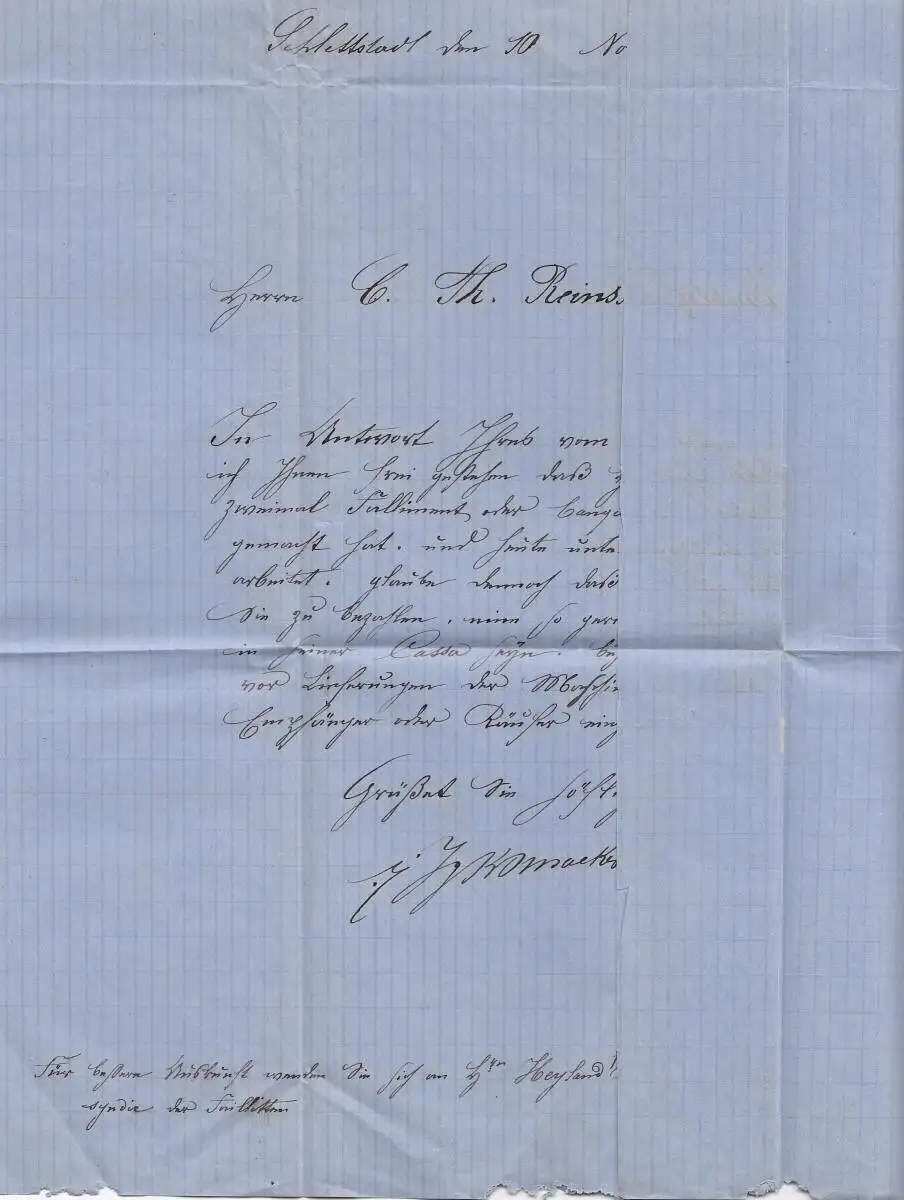 Schlettstadt den 10 No
Herrn C. Th. Reins
In Antwort Ihres vom
ich Ihnen frei gestehen daß
zweimal Falliment, oder banq
gemacht hat. und heute unte
arbeitet. glaube dennoch daß
Sie zu bezahlen. eine so geri
in seiner Cassa seyn. be
vor Lieferungen der Maschi
Empfänger oder Käufer eing
Grüßet Sie höfl
Für bessere Auskunft wenden Sie sich an Hrn Heyland
syndic der Failliten